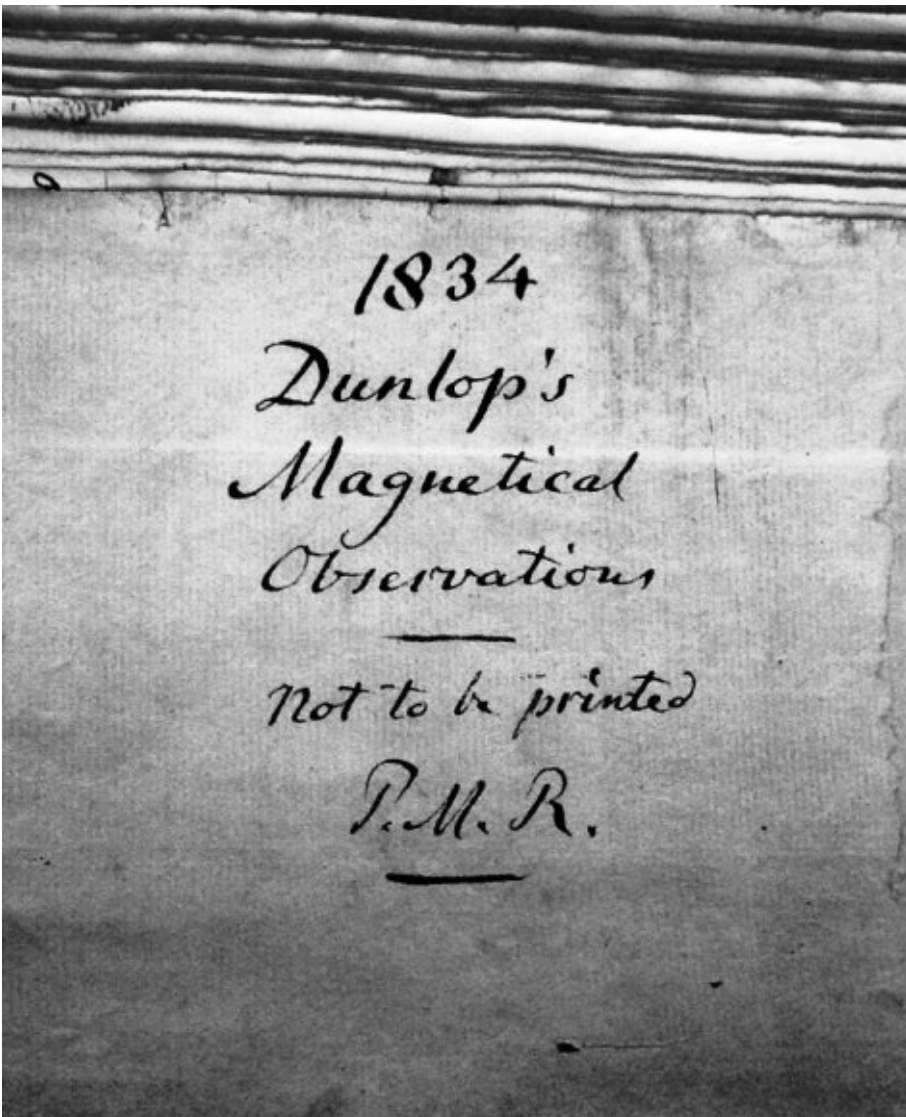 1834
Dunlop's
Magnetical
Observations
Not to be printed
P. M. R.